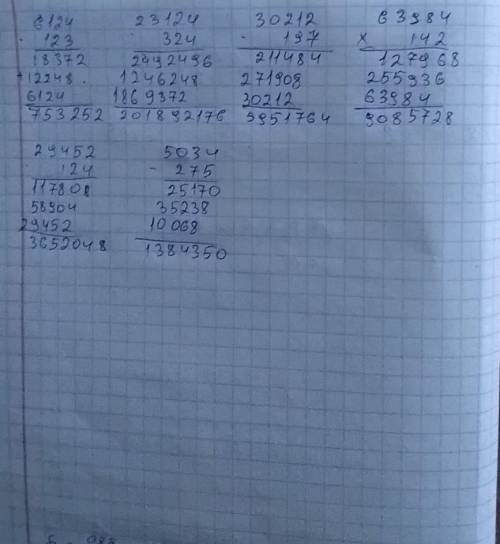 6124 23124 30212 63984
· 123 · 324 · 197 x 142
18372 2492496 211484 127968
+12248. 1246248 271908 255936
6124 1869372 30212 63984
753252 201892176 5951764 9085728
29452 5034
124 - 275
117808 25170
58904 35238
29452 10068
3652048 1384350